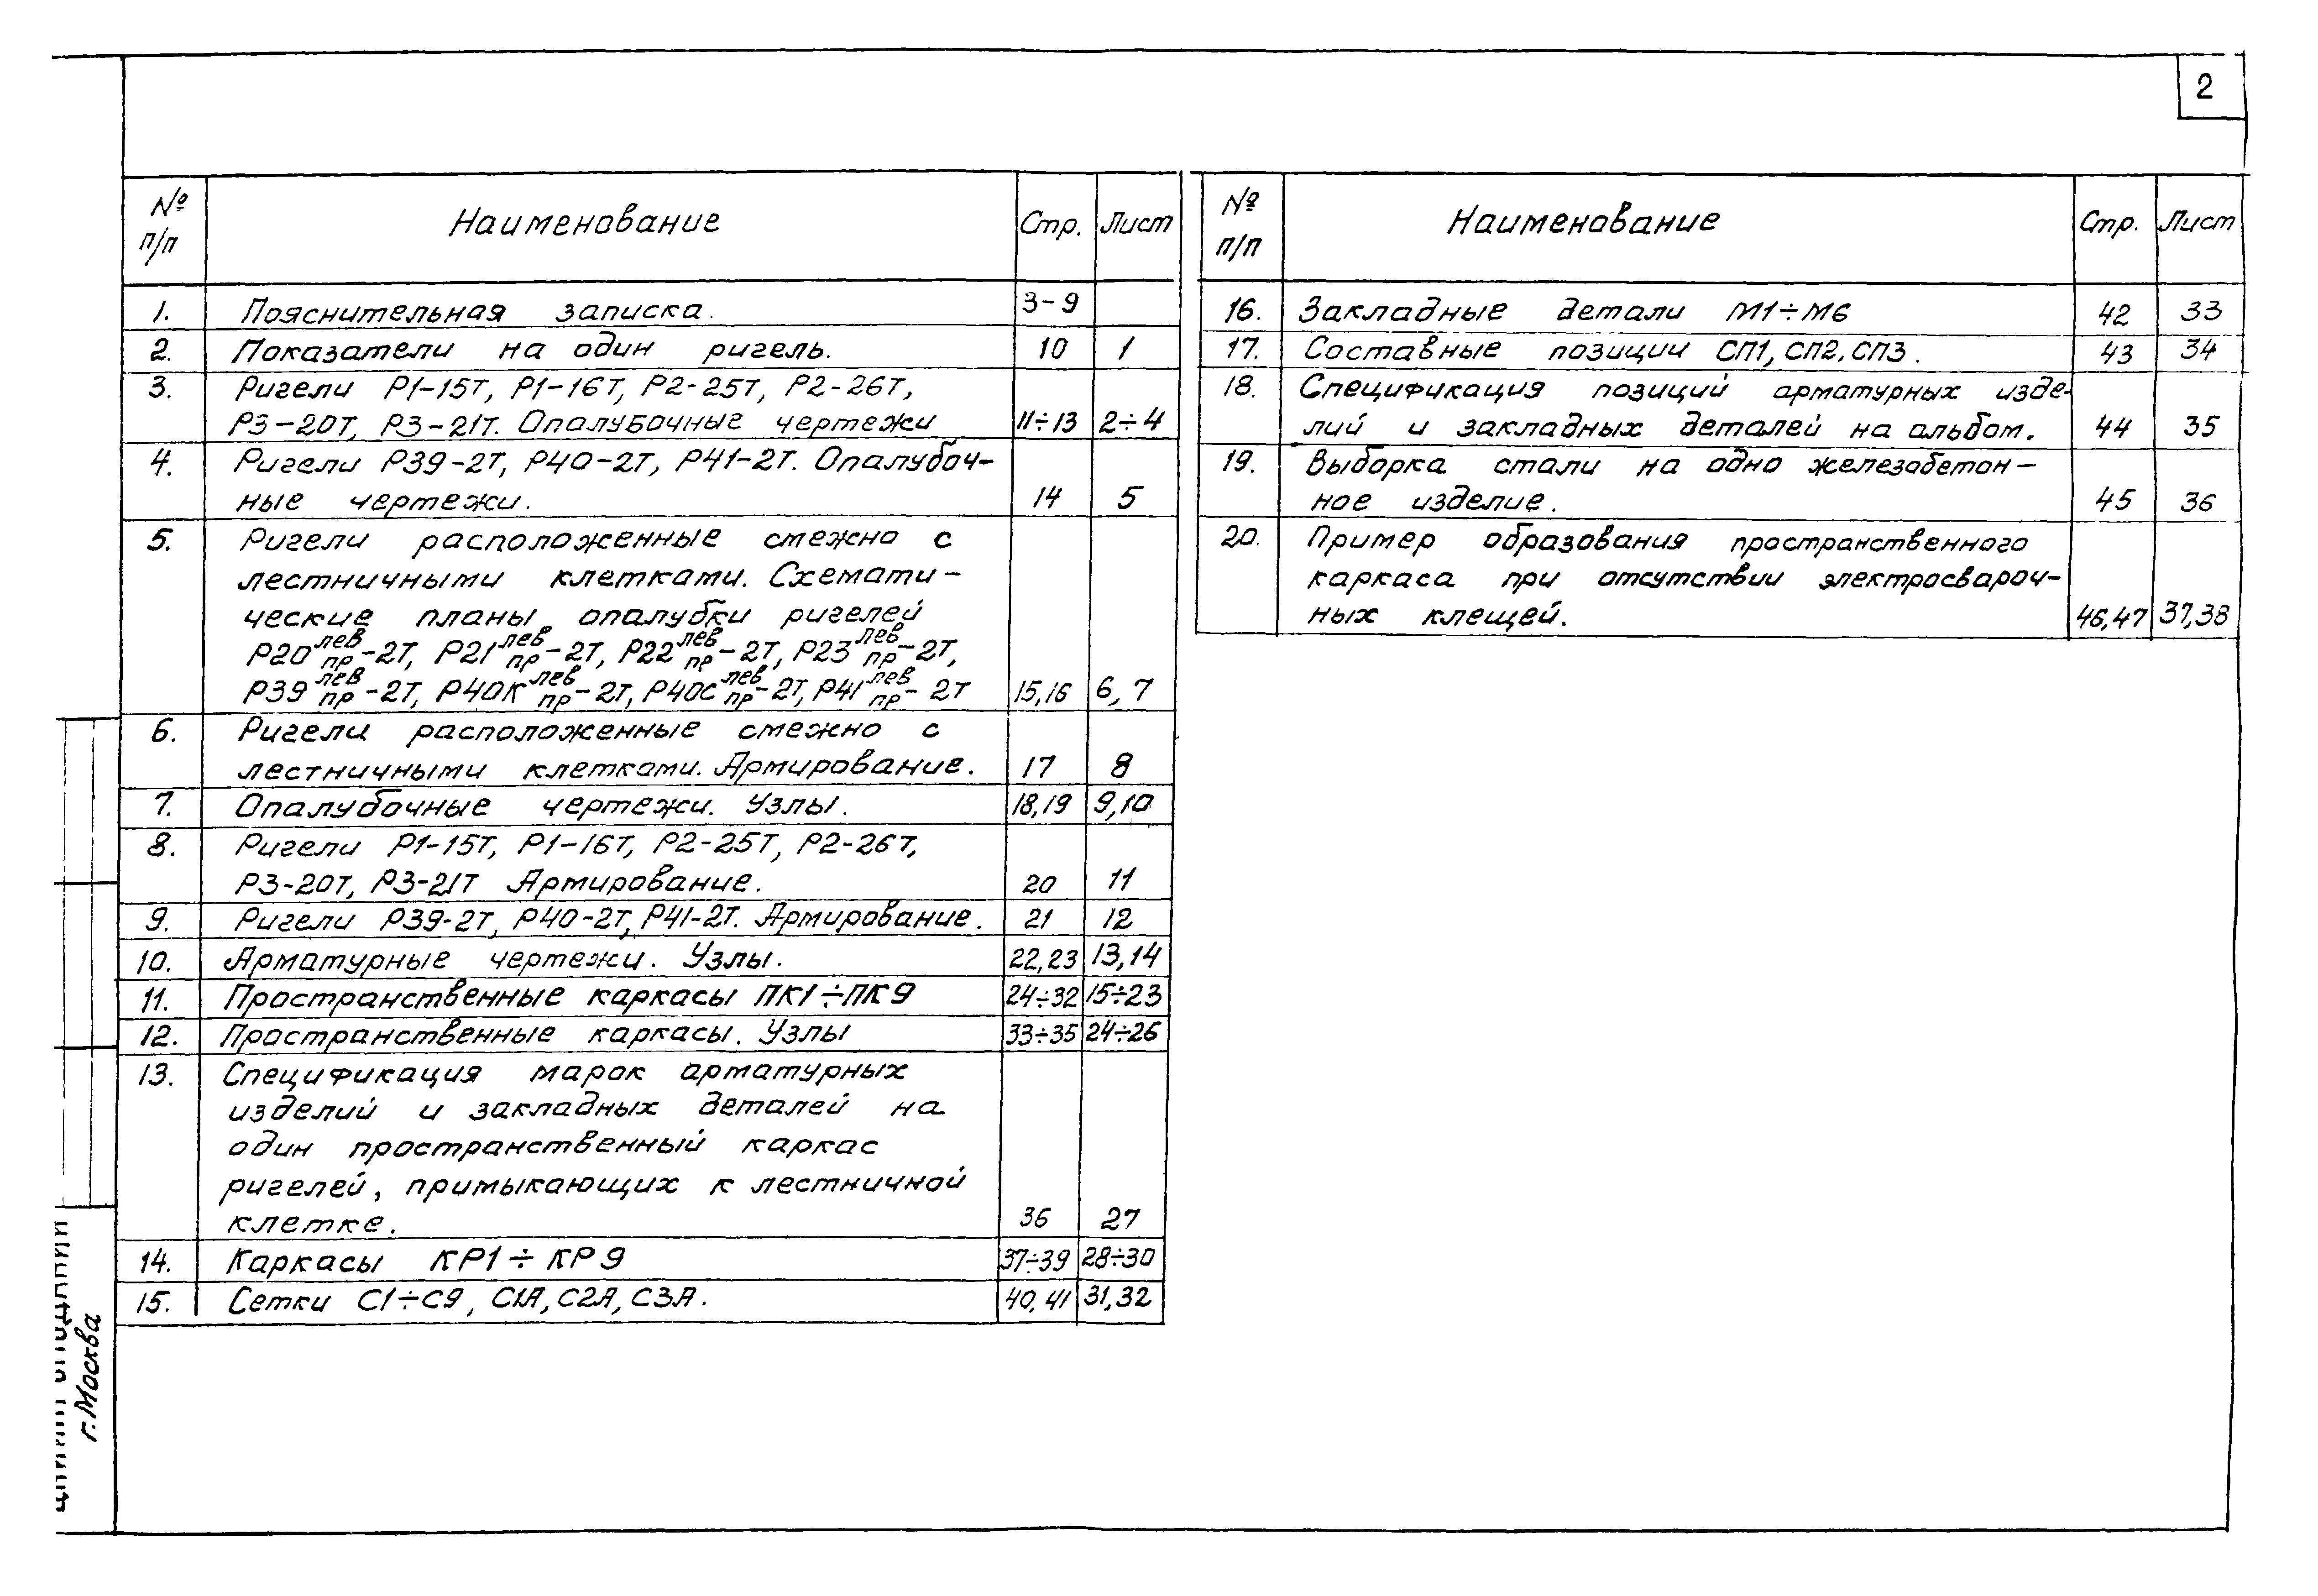 2
№ п/п Наименование Стр. Лист
1. Пояснительная записка. 3-9
2. Показатели на один ригель. 10 1
3. Ригели Р1-15Т, Р1-16Т, Р2-25Т, Р2-26Т,
Р3-20Т, Р3-21Т. Опалубочные чертежи 11÷13 2÷4
4. Ригели Р39-2Т, Р40-2Т, Р41-2Т. Опалубоч-
ные чертежи. 14 5
5. Ригели расположенные смежно с
лестничными клетками. Схемати-
ческие планы опалубки ригелей
Р20 лев пр -2Т, Р21 лев пр -2Т, Р22 лев пр -2Т, Р23 лев пр -2Т,
Р39 лев пр -2Т, Р40К лев пр -2Т, Р40С лев пр -2Т, Р41 лев пр - 2Т 15,16 6,7
6. Ригели расположенные смежно с
лестничными клетками. Армирование. 17 8
7. Опалубочные чертежи. Узлы. 18,19 9,10
8. Ригели Р1-15Т, Р1-16Т, Р2-25Т, Р2-26Т,
Р3-20Т, Р3-21Т Армирование. 20 11
9. Ригели Р39-2Т, Р40-2Т, Р41-2Т. Армирование. 21 12
10. Арматурные чертежи. Узлы. 22,23 13,14
11. Пространственные каркасы ПК1÷ПК9 24÷32 15÷23
12. Пространственные каркасы. Узлы 33÷35 24÷26
13. Спецификация марок арматурных
изделий и закладных деталей на
один пространственный каркас
ригелей, примыкающих к лестничной
клетке. 36 27
14. Каркасы КР1÷КР9 37÷39 28÷30
15. Сетки С1÷С9, С1А, С2А, С3А. 40,41 31,32
№ п/п Наименование Стр. Лист
16. Закладные детали М1÷М6 42 33
17. Составные позиции СП1, СП2, СП3. 43 34
18. Спецификация позиций арматурных изде-
лий и закладных деталей на альбом. 44 35
19. Выборка стали на одно железобетон-
ное изделие. 45 36
20. Пример образования пространственного
каркаса при отсутствии электросвароч-
ных клещей. 46,47 37,38
г. Москва